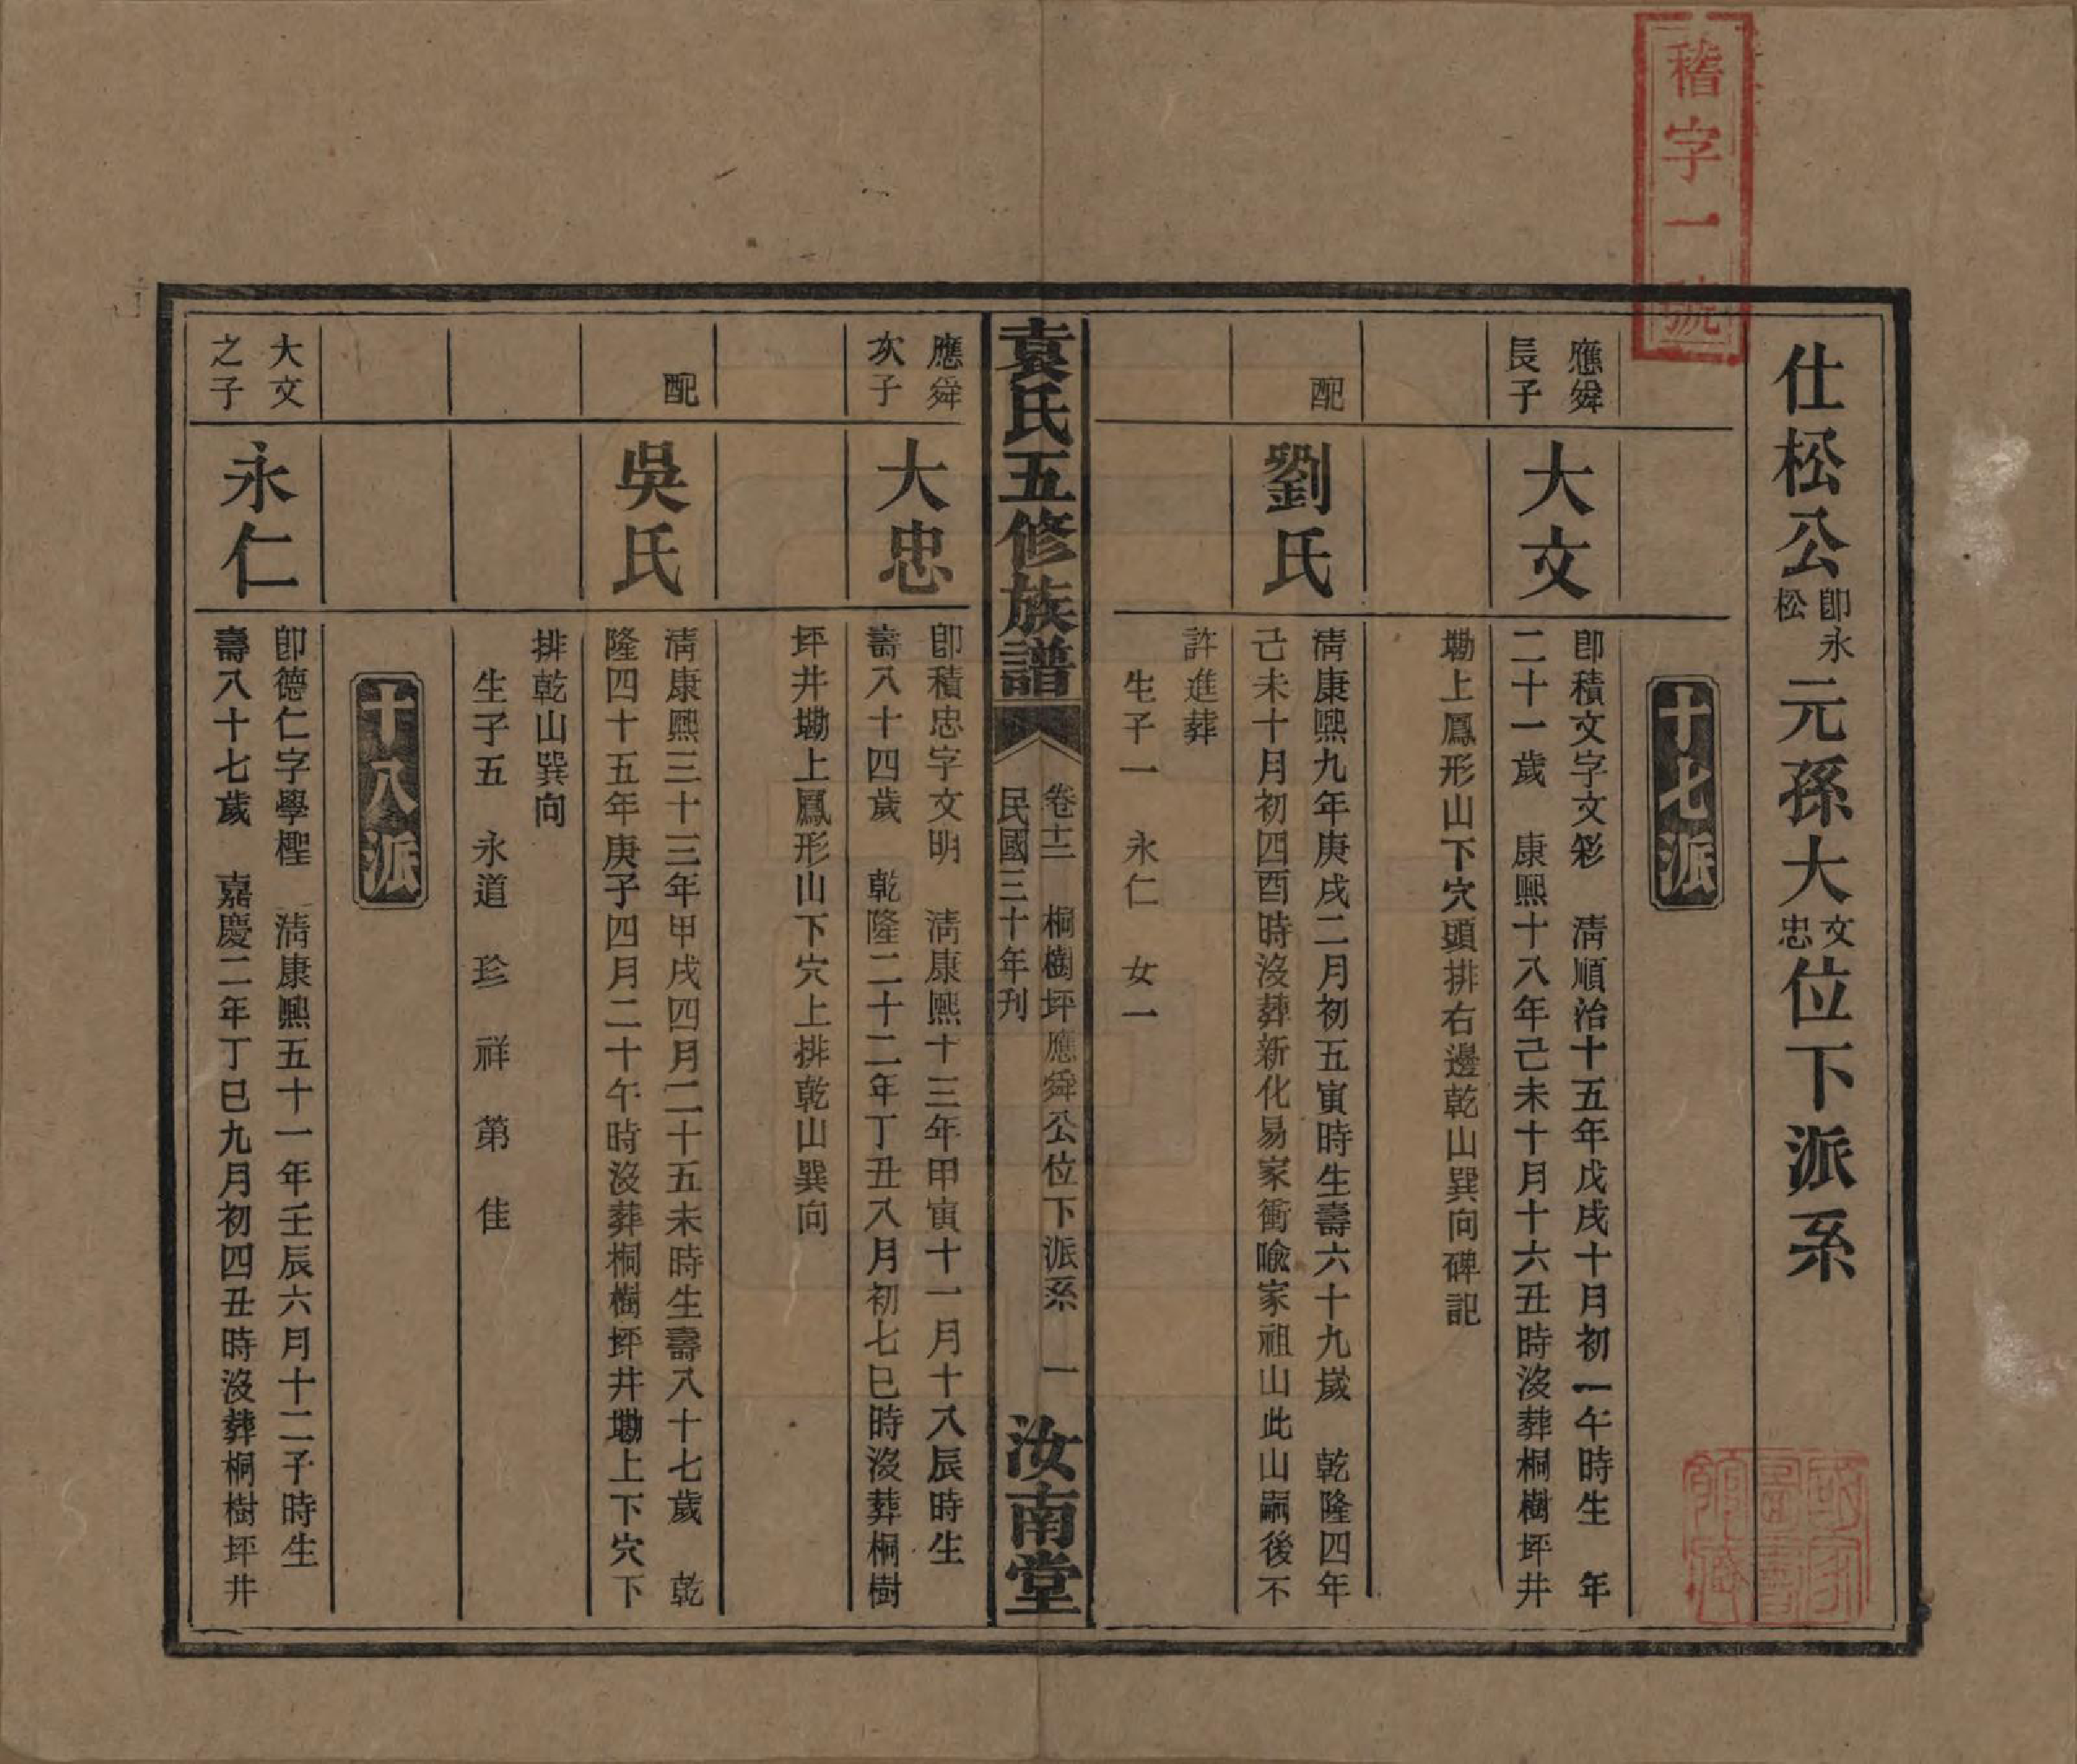 稽字一號
仕松公卽永松元孫大文忠位下派系
十七派
應舜長子
大文
卽積文字文彩　淸順治十五年戊戌十月初一午時生　年
二十一歲　康熙十八年己未十月十六丑時沒葬桐樹坪井
塝上鳳形山下穴頭排右邊乾山巽向碑記
配
劉氏
淸康熙九年庚戌二月初五寅時生壽六十九歲　乾隆四年
己未十月初四酉時沒葬新化易家衝喩家祖山此山嗣後不
許進葬
生子一　永仁　女一
袁氏五修族譜
卷十二　桐樹坪應舜公位下派系　一
民國三十年刊
汝南堂
應舜次子
大忠
卽積忠字文明　淸康熙十三年甲寅十一月十八辰時生
壽八十四歲　乾隆二十二年丁丑八月初七巳時沒葬桐樹
坪井塝上鳳形山下穴上排乾山巽向
配
吳氏
淸康熙三十三年甲戌四月二十五未時生壽八十七歲　乾
隆四十五年庚子四月二十午時沒葬桐樹坪井塝上下穴下
排乾山巽向
生子五　永道　珍　祥　第　佳
十八派
大文之子
永仁
卽德仁字學檉　淸康熙五十一年壬辰六月十二子時生
壽八十七歲　嘉慶二年丁巳九月初四丑時沒葬桐樹坪井